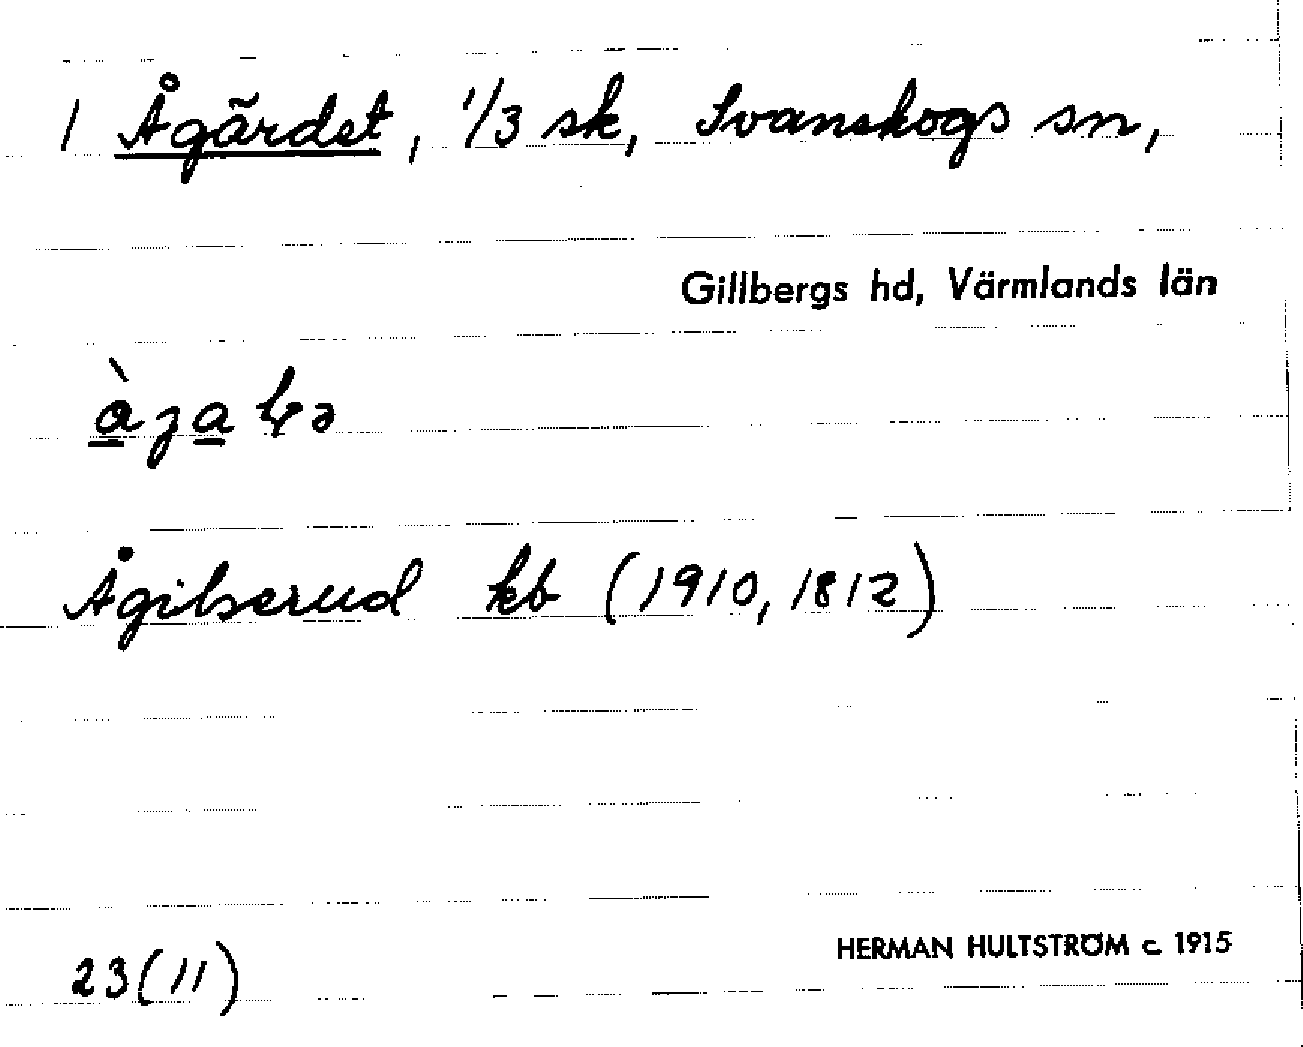 1 Ågärdet, 1/3 sk, Svanskogs sn,
Gillbergs hd, Värmlands län
Ågilserud kb (1910, 1812)
HERMAN HULTSTRÖM c. 1915
23(11)